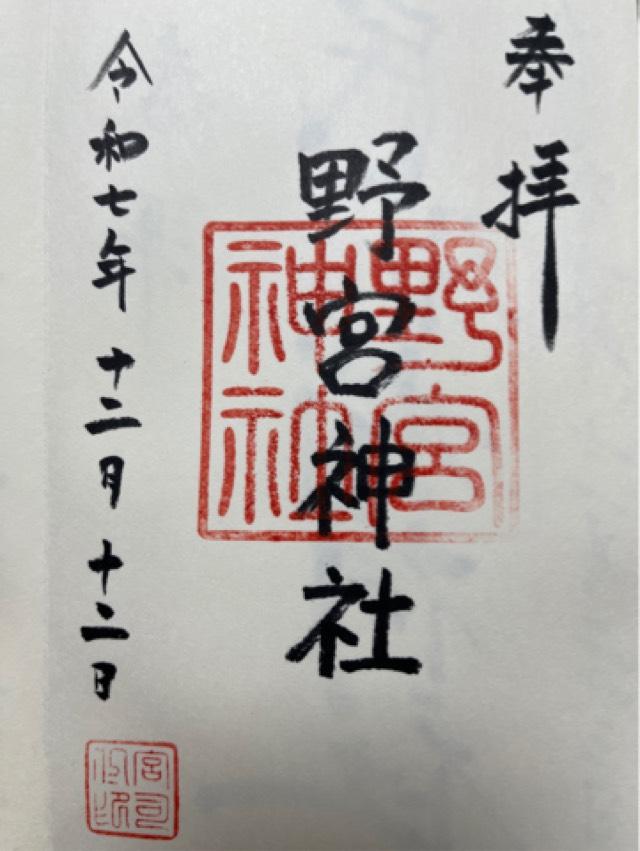 奉拝
野宮神社
野宮
神社
令和七年十二月十二日
宮司